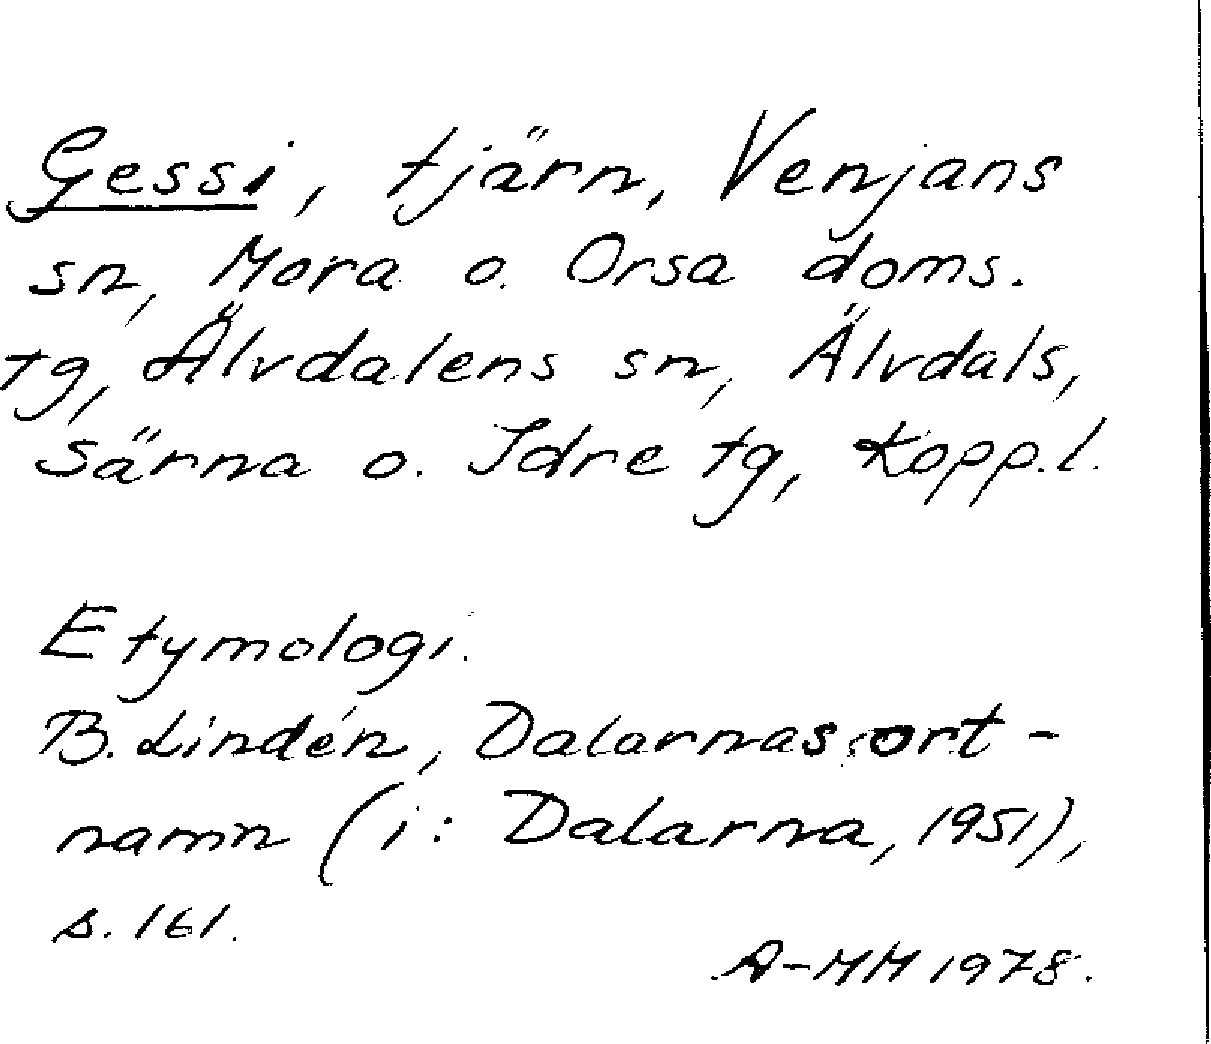 Gessi, tjärn, Venjans
sn, Mora o. Orsa doms.
tg, Älvdalens sn, Älvdals,
Särna o. Idre tg, Kopp.l.
Etymologi.
B. Lindén, Dalarnas ort-
namn (i: Dalarna, 1951),
s. 161.
A-MM 1978.